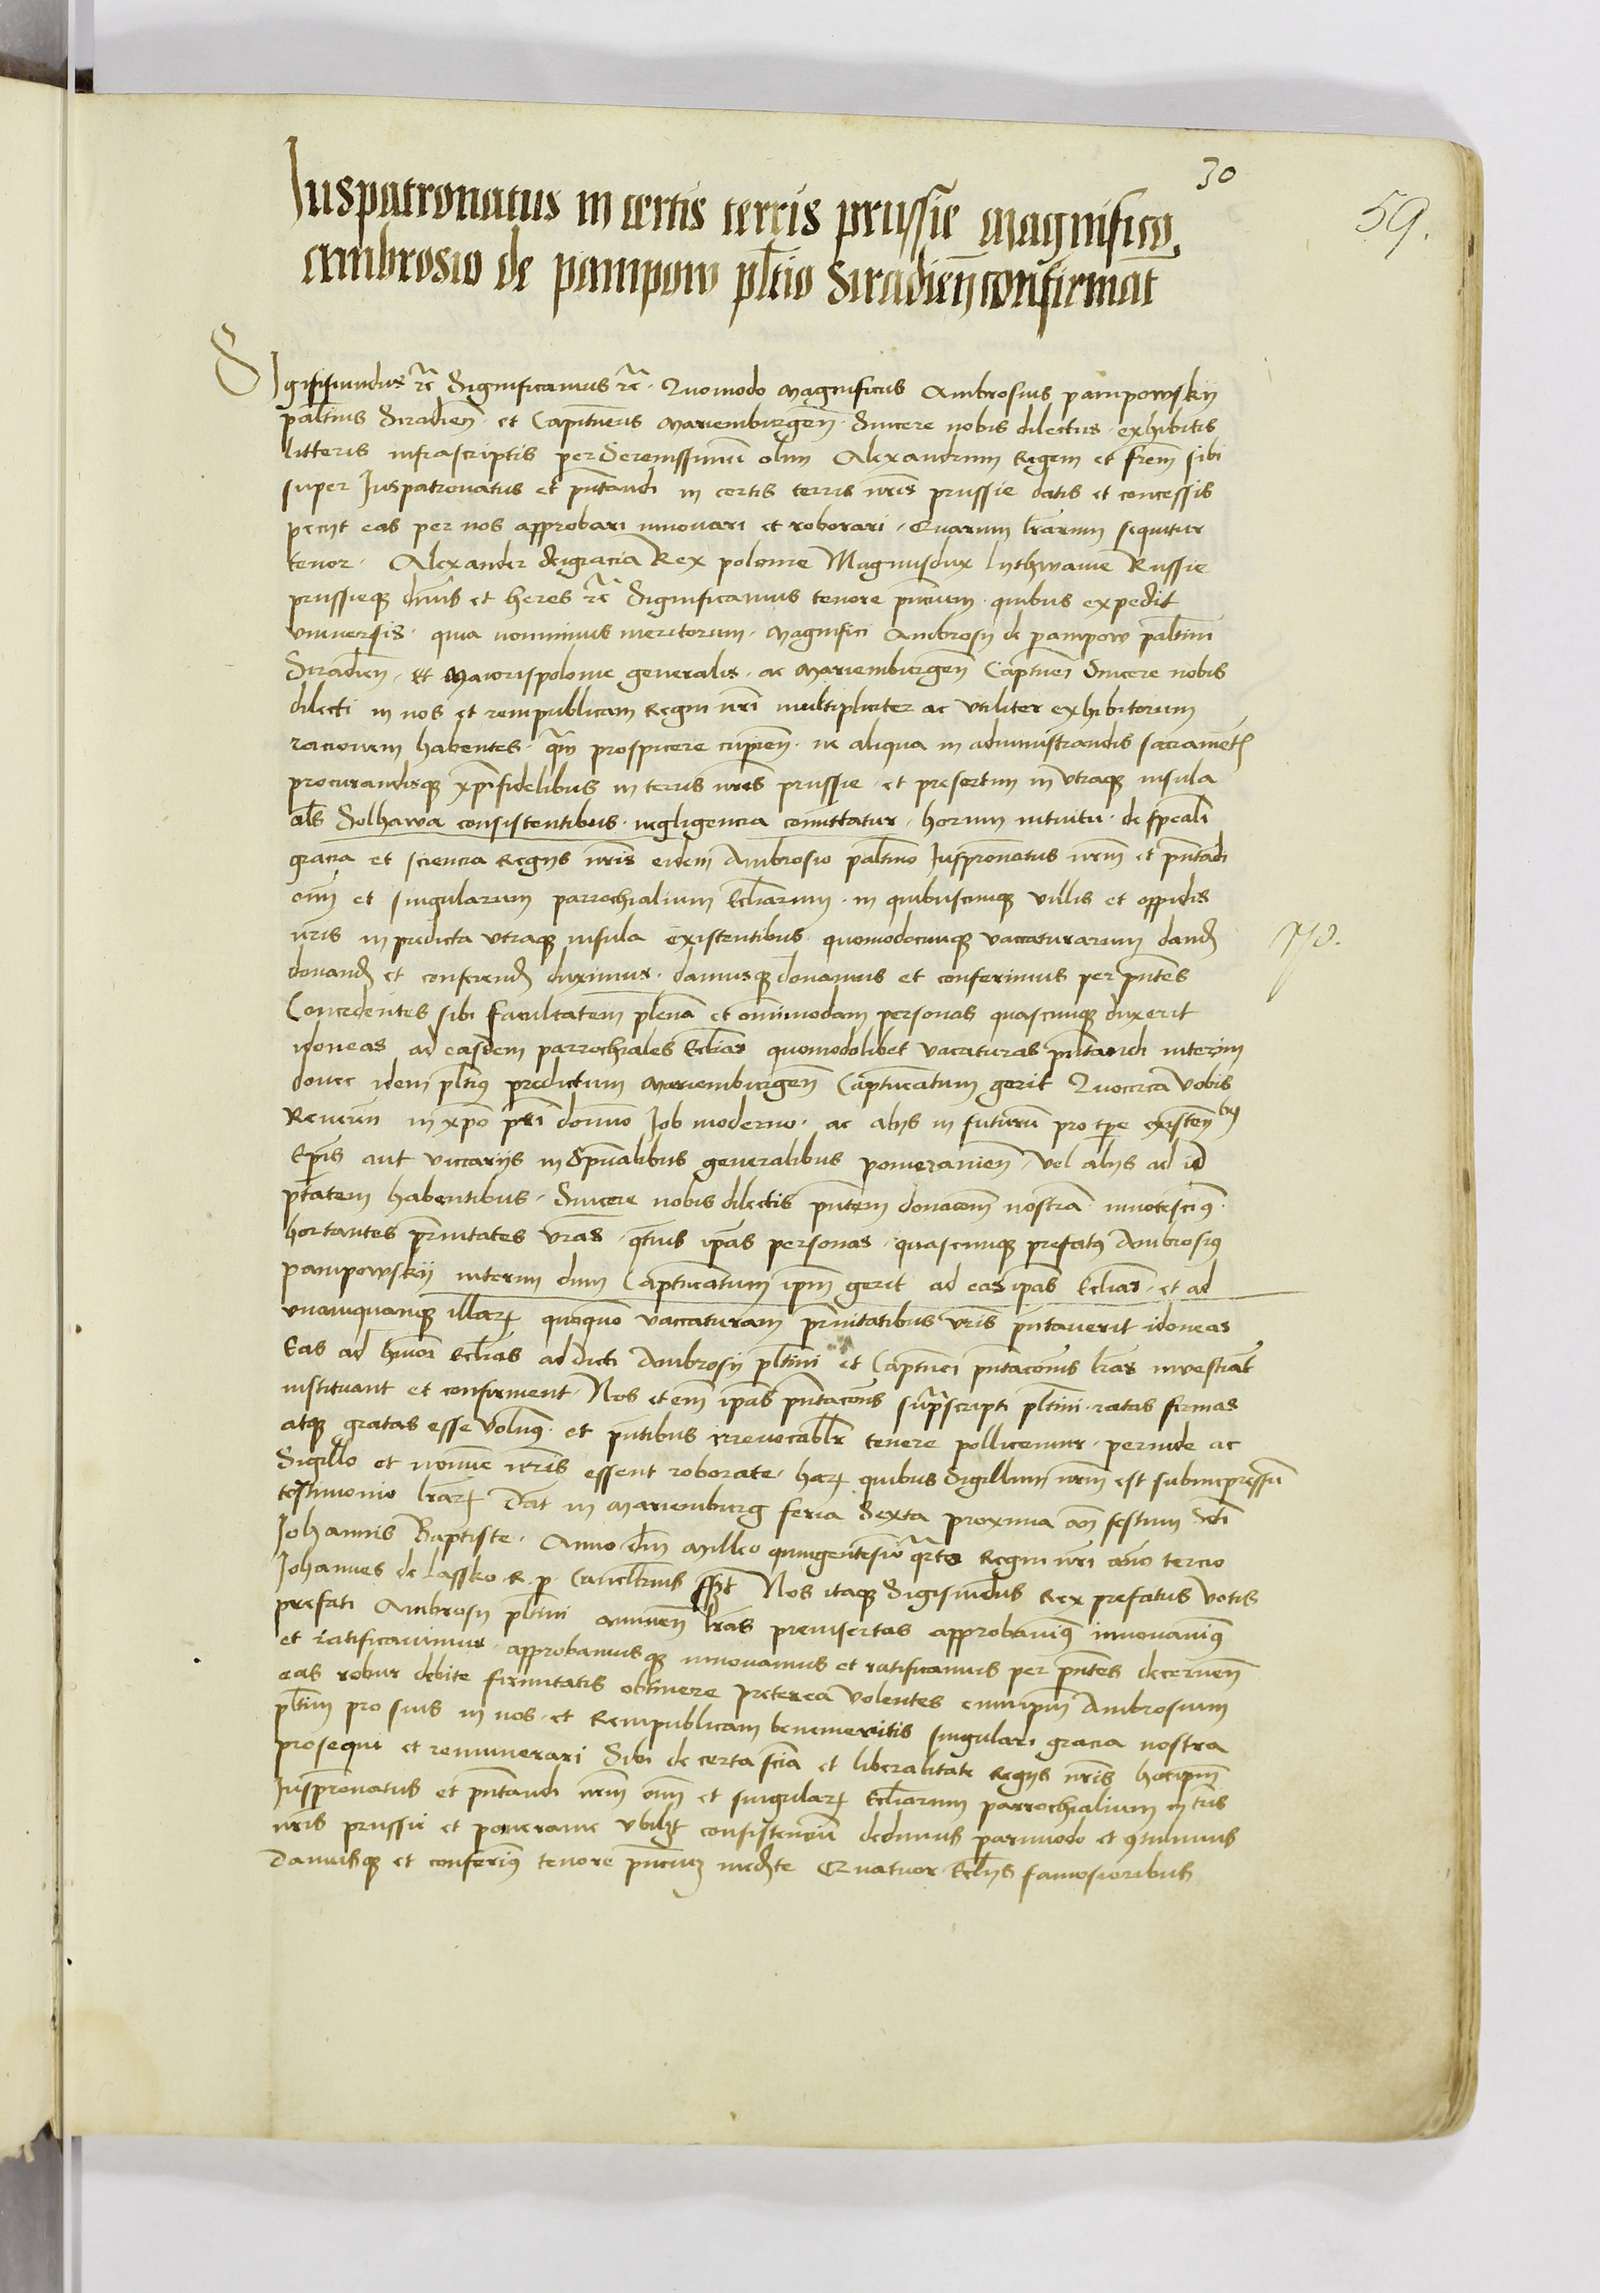 30
59.
Juspatronatus in certis terris prussie Magnifico
Ambrosio de pampow pltio Siradien confirmat
Sigismundus rc Significamus rc. Quomodo Magnificus Ambrosius pampowskij
paltinus Siradien et Capitneus Mariemburgen Sincere nobis dilectus exhibitis
litteris infrascriptis per Serenissimu olim Alexandrum Regem et frem sibi
super Juspatronatus et pntandi in certis terris nris prussie datis et concessis
peciyt eas per nos approbari innovari et roborari. Quarum lrarum sequitur
tenor. Alexander deigracia Rex polonie Magnusdux lythwanie Russie
prussieq dnus et heres rc Significamus tenore pncium quibus expedit
universis. quia nonminus meritorum Magnifici Ambrosij de pampow paltini
Siradien et Maiorispolonie generalis. ac Mariemburgen Captnei Sincere nobis
dilecti in nos et rempublicam Regni nri multipliciter ac utiliter exhibitorum
racionem habentes. qm prospicere cupien. ne aliqua in administrandis sacrament
procurandisq xpifidelibus in terris nris prussie. et presertim in utraq insula
als Solhawa consistentibus. negligencia comittatur. horum intuitu. de speali
gracia et sciencia Regijs nris eidem Ambrosio paltino Juspronatus nrm et pntadi
oim et singularum parrochialium Ecliarum. in quibuscunq villis et oppidis
nris in predicta utraq insula existentibus quomodocunq vaccaturarum dand
donand et conferend duximus. damusq donamus et conferimus per pntes
Concedentes sibi facultatem plena et omnimodam personas quascunq duxerit
idoneas ad easdem parrochiales Eclias quomodolibet vacaturas pntandi interim
donec idem pltius predictum Mariemburgen Captneatum gerit Quocirca vobis
Reveren in xpo pri domino Job moderno. ac alijs in futuru pro tpe existentibus
Epis aut viccarijs in Spualibus generalibus pomeranien. vel alijs ad id
ptatem habentibus. Sincere nobis dilectis pntem donacoem nostra innotescimus
hortantes prnitates vras. qtinus ipas personas. quascunq prefatus Ambrosius
pampowskij interim dum Captneatum ipm gerit ad eas ipas Eclias. et ad
unamquamq illar quoquo vaccaturam prnitatibus vris pntaverit idoneas
Eas ad hmoi Eclias ad dicti Ambrosij pltini et Captnei pntaconis lras investiat
instituant et confirment. Nos etem ipas pntacons suprascripti pltini. ratas firmas
atq gratas esse volumus. et pntibus irrevocablr tenere pollicemur. perinde ac
Sigillo et nomine nris essent roborate. har quibus Sigillum nrm est subimpressu
testimonio lrar Dat in Mariemburg feria Sexta proxima an festum Scti
Johannis Baptiste. Anno dni Milleo quingentesio qrto Regni nri anno tercio
Johannes de lassko R. p. Cancllrius sszt Nos itaq Sigismudus Rex prefatus votis
prefati Ambrosij pltini annuen lras preinsertas approbavimus innovavimus
et ratificavimus. approbamusq innovamus et ratificamus per pntes decernen
eas robur debite firmitatis obtinere preterea volentes eundipm Ambrosium
pltinu pro suis in nos. et Rempublicam benemeritis singulari gracia nostra
prosequi et remunerari Sibi de certa scia et liberalitate Regijs nris hocipm
Juspronatus et pntandi nrm oim et singular Ecliarum parrochialium in tris
nris prussie et pomeranie ubilzt consistenciu dedimus parimodo et contulimus
Damusq et conferimus tenore pnciu mediante Quatuor Eclijs famosioribus